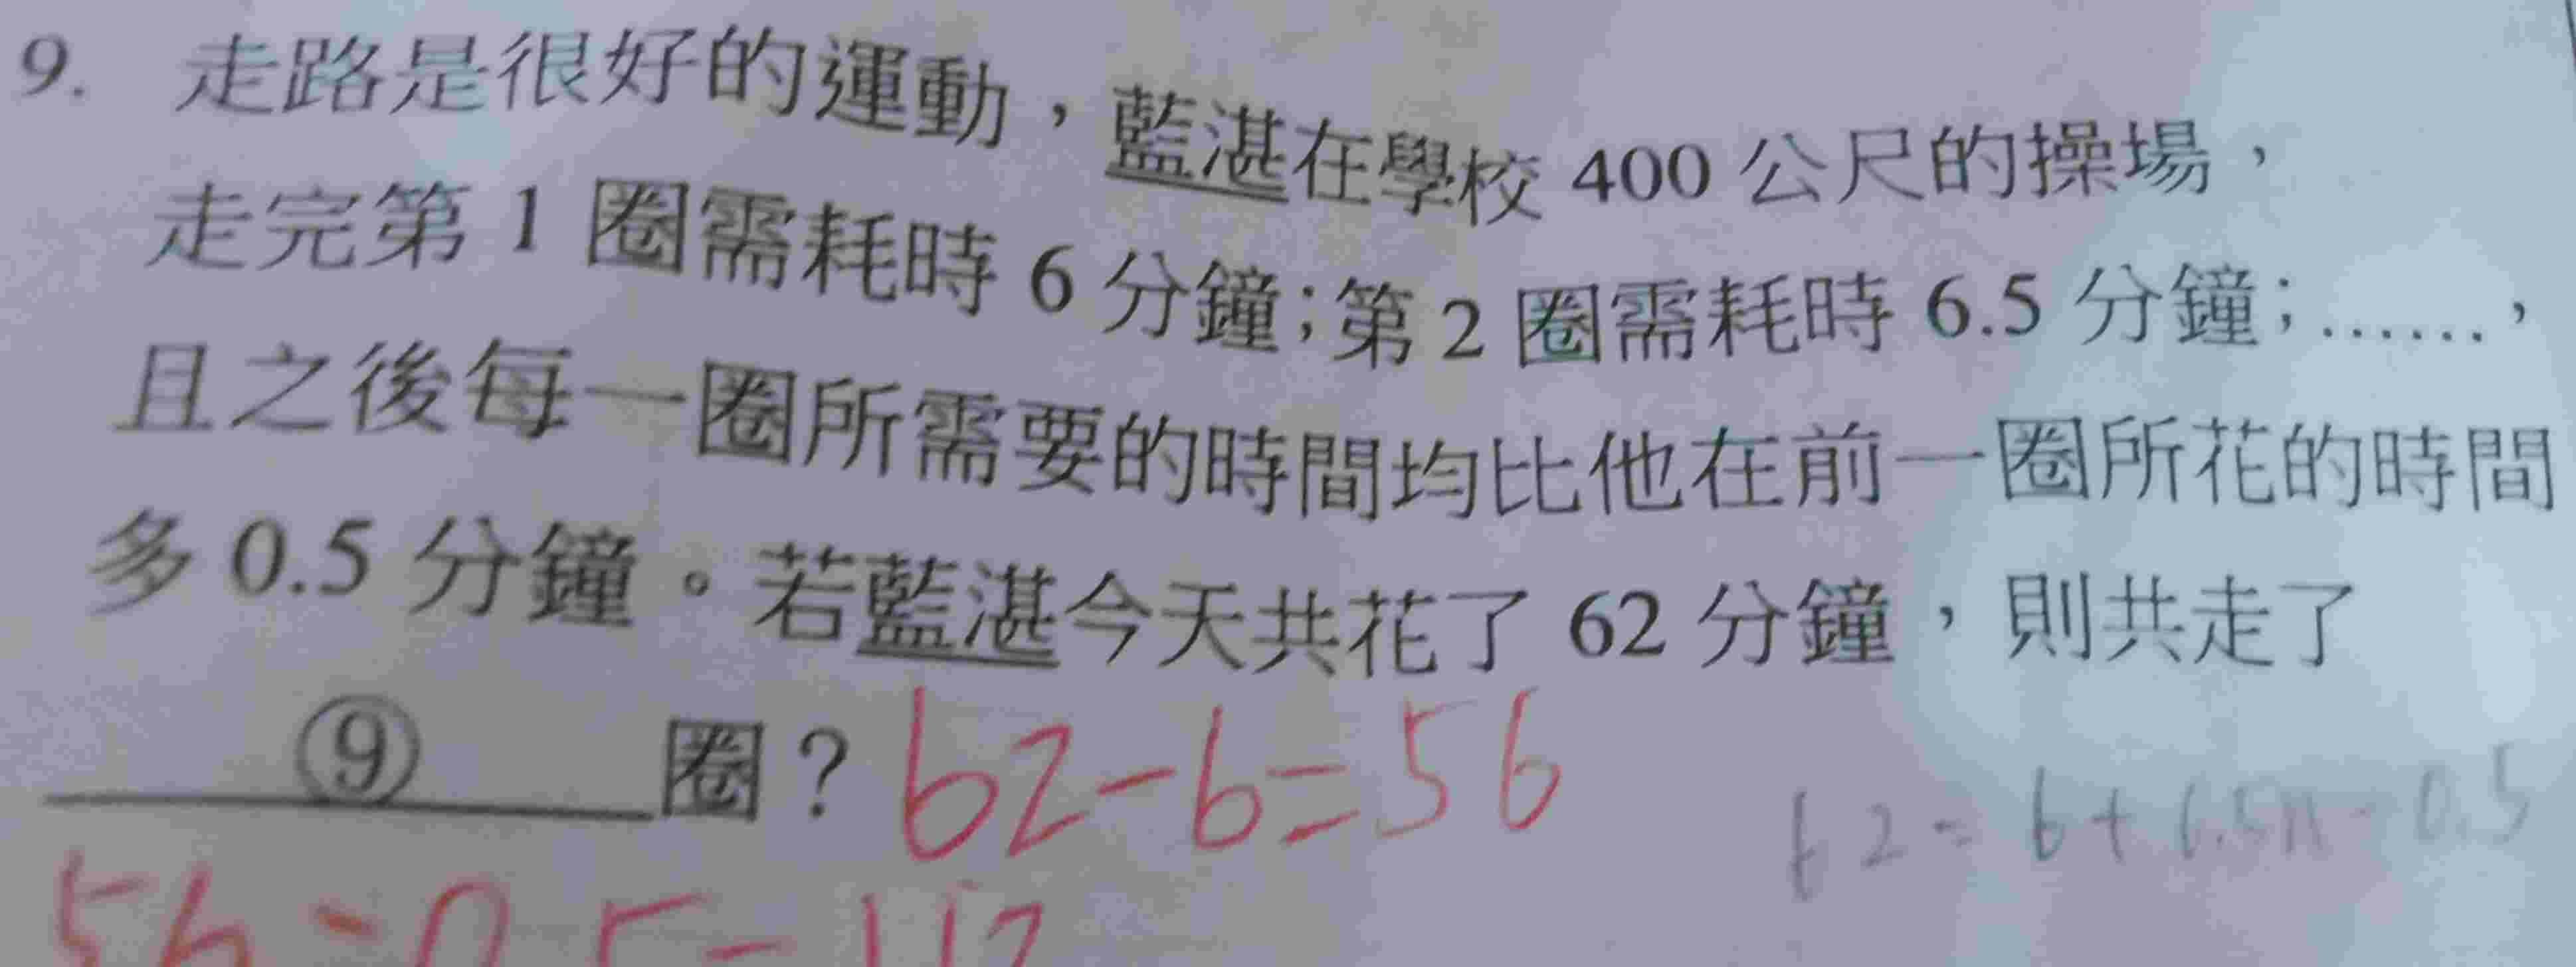 9. 走路是很好的運動，藍湛在學校 400 公尺的操場，
走完第 1 圈需耗時 6 分鐘；第 2 圈需耗時 6.5 分鐘；……，
且之後每一圈所需要的時間均比他在前一圈所花的時間
多 0.5 分鐘。若藍湛今天共花了 62 分鐘，則共走了
⑨ 圈？ 62-6=56
62=6+6.5n-0.5
56÷0.5=112